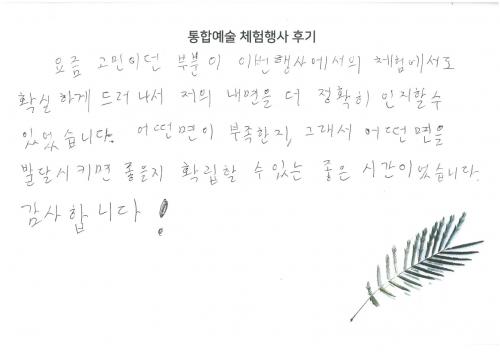 통합예술 체험행사 후기
요즘 고민이던 부분이 이번행사에서의 체험에서도
확실하게 드러나서 저의 내면을 더 정확히 인지할수
있었습니다. 어떤면이 부족한지, 그래서 어떤면을
발달시키면 좋을지 확립할 수있는 좋은 시간이었습니다.
감사합니다!